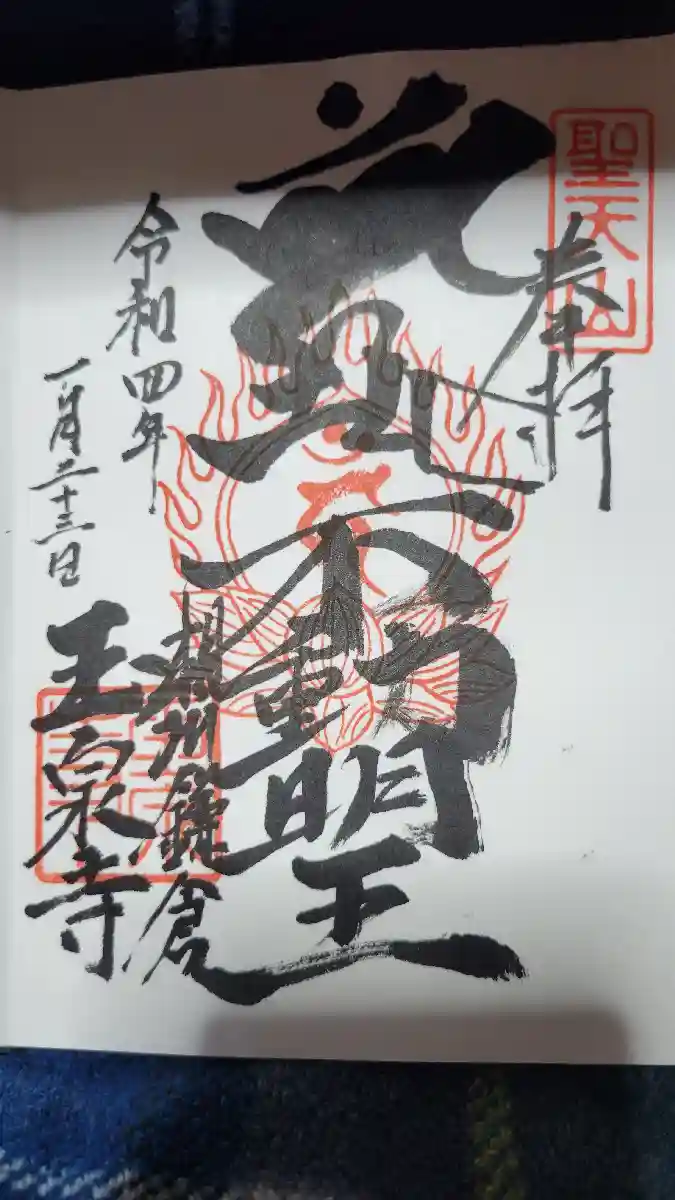 聖天山
奉拝
不動明王
相州鎌倉
玉泉寺
令和四年
一月二十三日